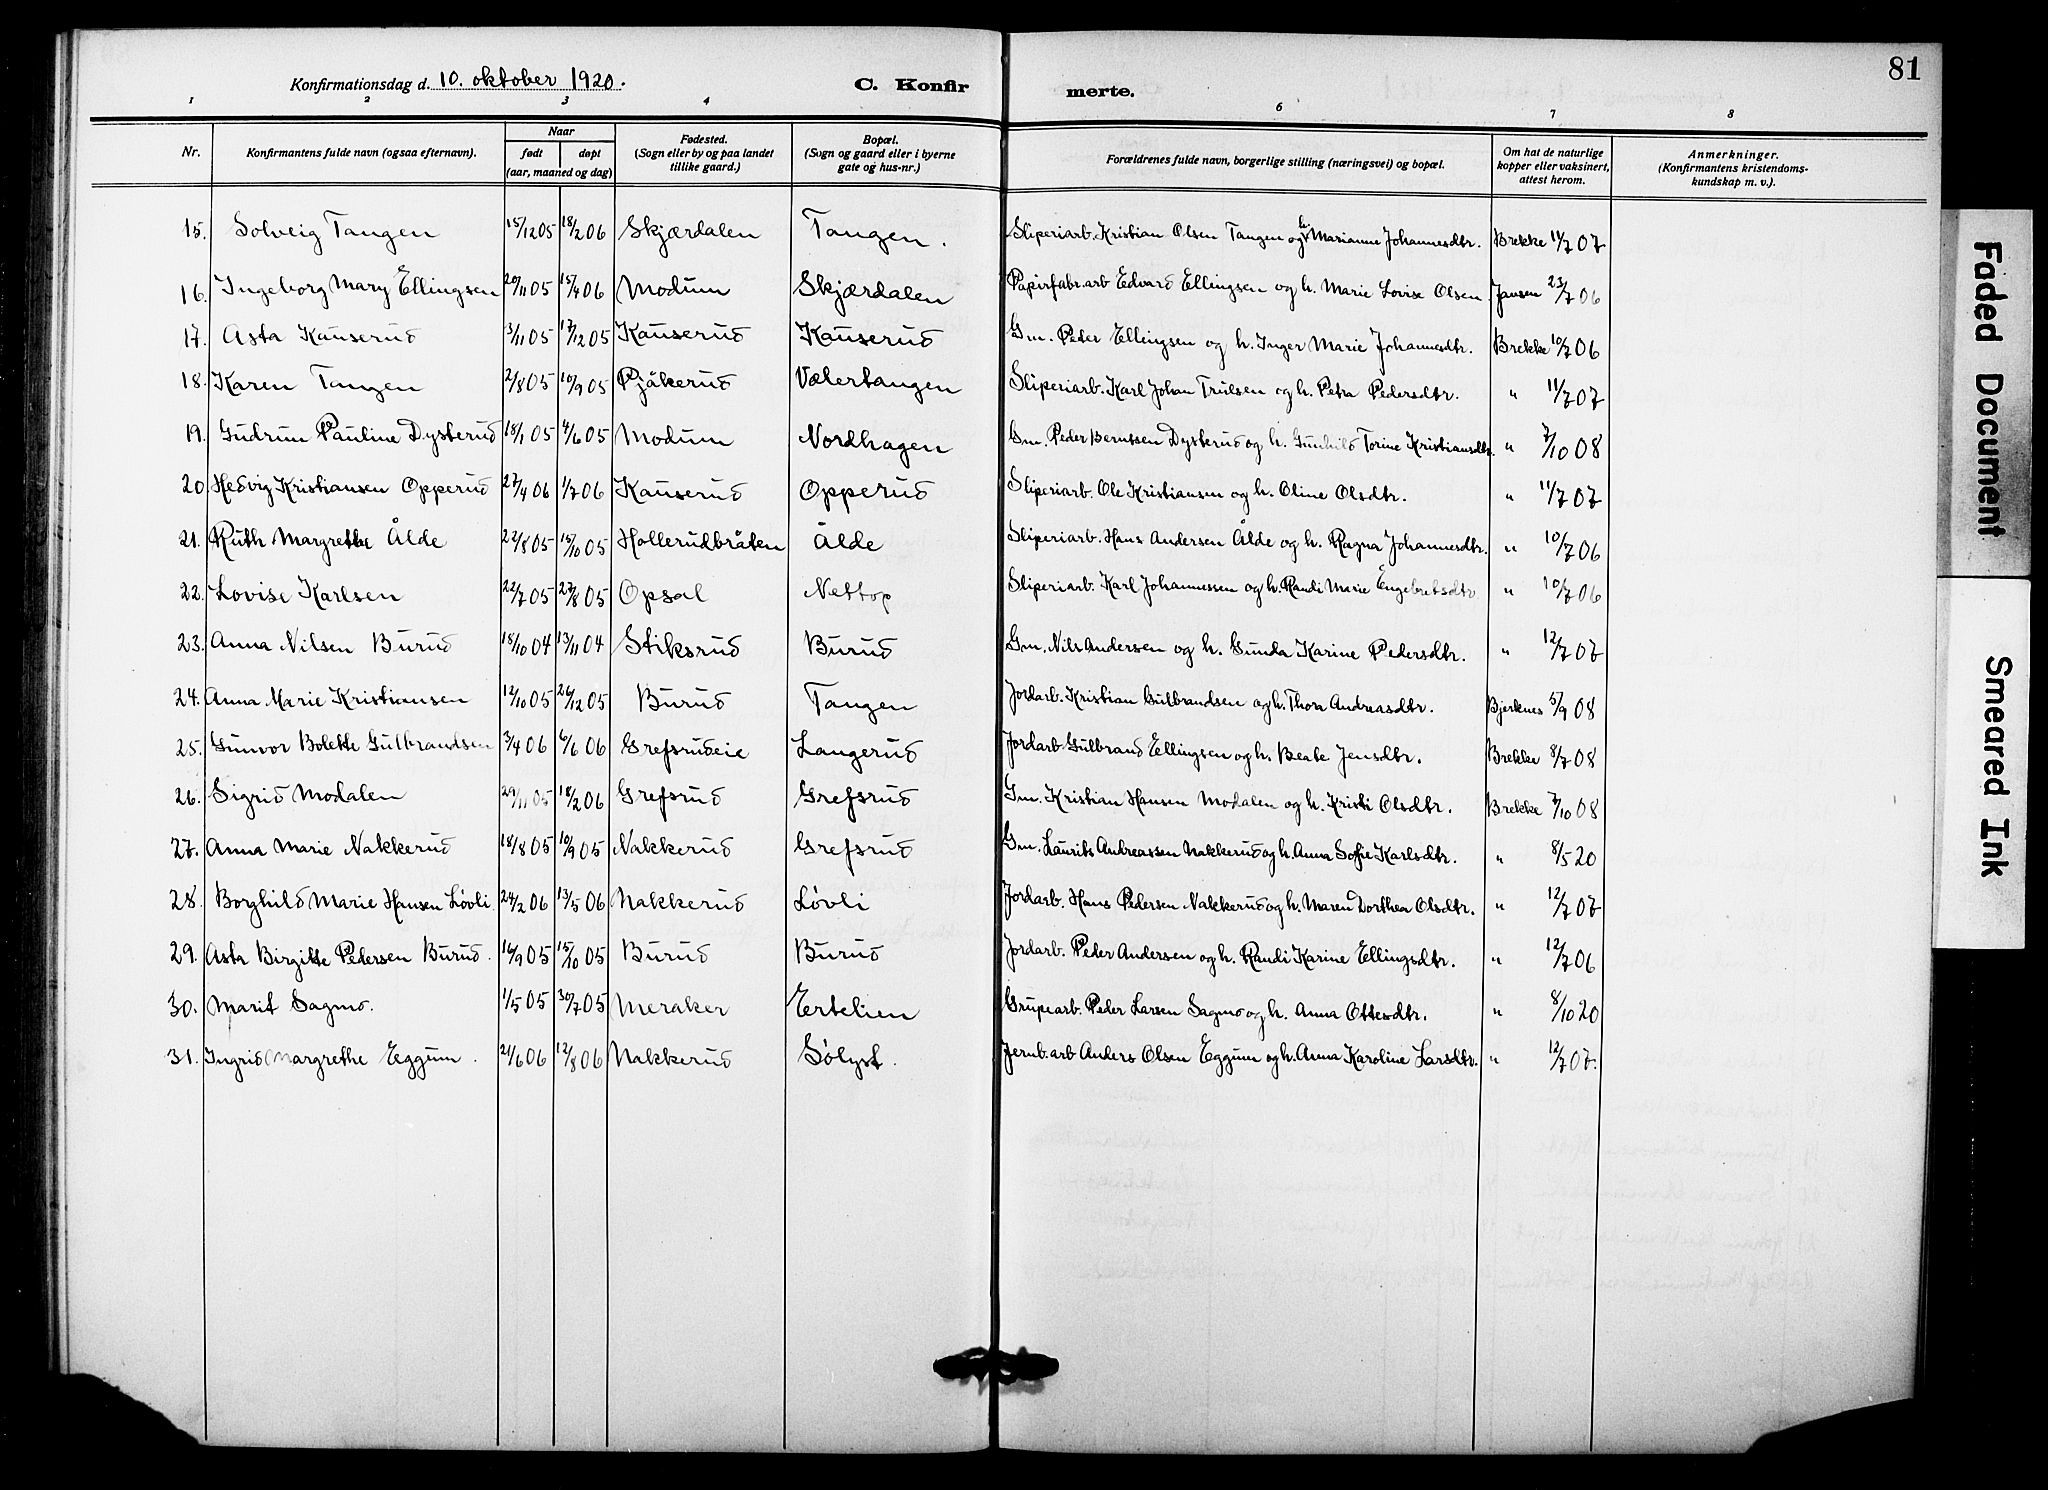 81
Konfirmationsdag d. 10. oktober 1920.
C. Konfirmerte.
1 2 3 4 5 6 7 8
Nr. Konfirmantens fulde navn (ogsaa efternavn). Naar født døpt (aar, maaned og dag) Fødested. (Sogn eller by og paa landet tillike gaard.) Bopæl. (Sogn og gaard eller i byerne gate og hus-nr.) Forældrenes fulde navn, borgerlige stilling (næringsvei) og bopæl. Om hat de naturlige kopper eller vaksinert, attest herom. Anmerkninger. (Konfirmantens kristendoms-kundskap m. v.).
15. Solveig Tangen 15/12 05 18/2 06 Skjærdalen Tangen. Sliperiarb. Kristian Olsen Tangen og h. Marianne Johannesdtr. Brekke 11/7 07
16. Ingeborg Mary Ellingsen 20/11 05 15/4 06 Modum Skjærdalen Papirfabr.arb Edvard Ellingsen og h. Marie Lovise Olsen Jansen 23/7 06
17. Asta Kauserud 3/11 05 17/12 05 Kauserud Kauserud Gm. Peder Ellingsen og h. Inger Marie Johannesdtr. Brekke 10/7 06
18. Karen Tangen 2/8 05 10/9 05 Pjåkerud Vælertangen Sliperiarb. Karl Johan Trulsen og h. Petra Pedersdtr. " 11/7 07
19. Gudrun Pauline Dysterud 18/1 05 4/6 05 Modum Nordhagen Gm. Peder Berntsen Dysterud og h. Gunhild Torine Kristiansdtr. " 7/10 08
20. Hedvig Kristiansen Opperud 27/4 06 1/7 06 Kauserud Opperud Sliperiarb. Ole Kristiansen og h. Oline Olsdtr. " 11/7 07
21. Ruth Margrethe Ålde 22/8 05 15/10 05 Hollerudbråten Ålde Sliperiarb. Hans Andersen Ålde og h. Ragna Johannesdtr. " 10/7 06
22. Lovise Karlsen 22/7 05 27/8 05 Opsal Nettop Sliperiarb. Karl Johannessen og h. Randi Marie Engebretsdtr " 10/7 06
23. Anna Nilsen Burud 18/10 04 13/11 04 Stiksrud Burud Gm. Nils Andersen og h. Gunda Karine Pedersdtr. " 12/7 07
24. Anna Marie Kristiansen 12/10 05 26/12 05 Burud Tangen Jordarb. Kristian Gulbrandsen og h. Thora Andreasdtr. Bjerknes 5/9 08
25. Gunvor Bolette Gulbrandsen 3/4 06 6/6 06 Grefsrudeie Langerud Jordarb Gulbrand Ellingsen og h. Beate Jensdtr. Brekke 8/7 08
26. Sigrid Modalen 29/11 05 18/2 06 Grefsrud Grefsrud Gm. Kristian Hansen Modalen og h. Kristi Olsdtr. Brekke 7/10 08
27. Anna Marie Nakkerud 18/8 05 10/9 05 Nakkerud Grefsrud Gm. Laurits Andreassen Nakkerud og h. Anna Sofie Karlsdtr. " 8/5 20
28. Borghild Marie Hansen Løvli. 24/2 06 13/5 06 Nakkerud Løvli Jordarb. Hans Pedersen Nakkerud og h. Maren Dorthea Olsdtr. " 12/7 07
29. Asta Birgitte Pedersen Burud. 16/9 05 15/10 05 Burud Burud Jordarb. Peder Andersen og h. Randi Karine Ellingsdtr. " 12/7 06
30. Marit Sagmo. 1/5 05 30/7 05 Meraker Ertelien Grupearb. Peder Larsen Sagmo og h. Anna Ottesdtr. " 8/10 20
31. Ingrid Margrethe Eggum. 21/6 06 12/8 06 Nakkerud Sølyst. Jernb.arb Anders Olsen Eggum og h. Anna Karoline Larsdtr. " 12/7 07.
Faded Document
Smeared Ink